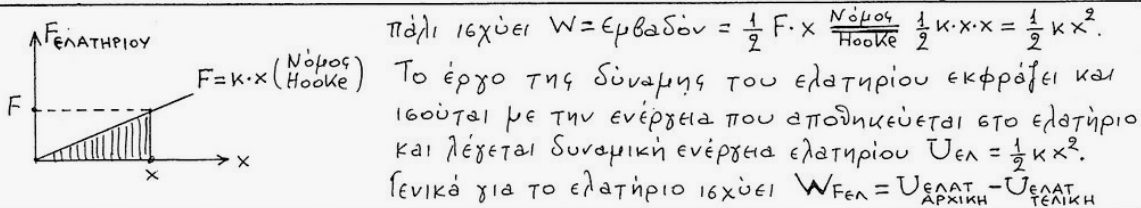 F ΕΛΑΤΗΡΙΟΥ
F = κ·x (Νόμος Hooke)
F
x
x
πάλι ισχύει W = Εμβαδόν = 1/2 F·x =(Νόμος Hooke)= 1/2 κ·x·x = 1/2 κ x².
Το έργο της δύναμης του ελατηρίου εκφράζει και
ισούται με την ενέργεια που αποθηκεύεται στο ελατήριο
και λέγεται δυναμική ενέργεια ελατηρίου Uελ = 1/2 κ x².
Γενικά για το ελατήριο ισχύει W Fελ = U ΕΛΑΤ ΑΡΧΙΚΗ - U ΕΛΑΤ ΤΕΛΙΚΗ